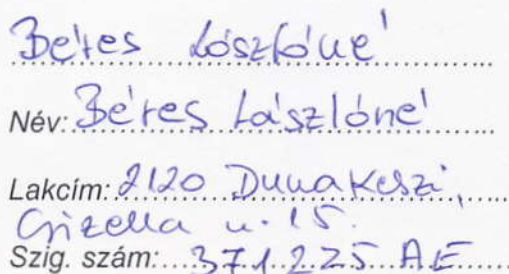 Béres Lászlóné
Név: Béres Lászlóné
Lakcím: 2120 Dunakeszi,
Gizella u. 15.
Szig. szám: 371225 AE